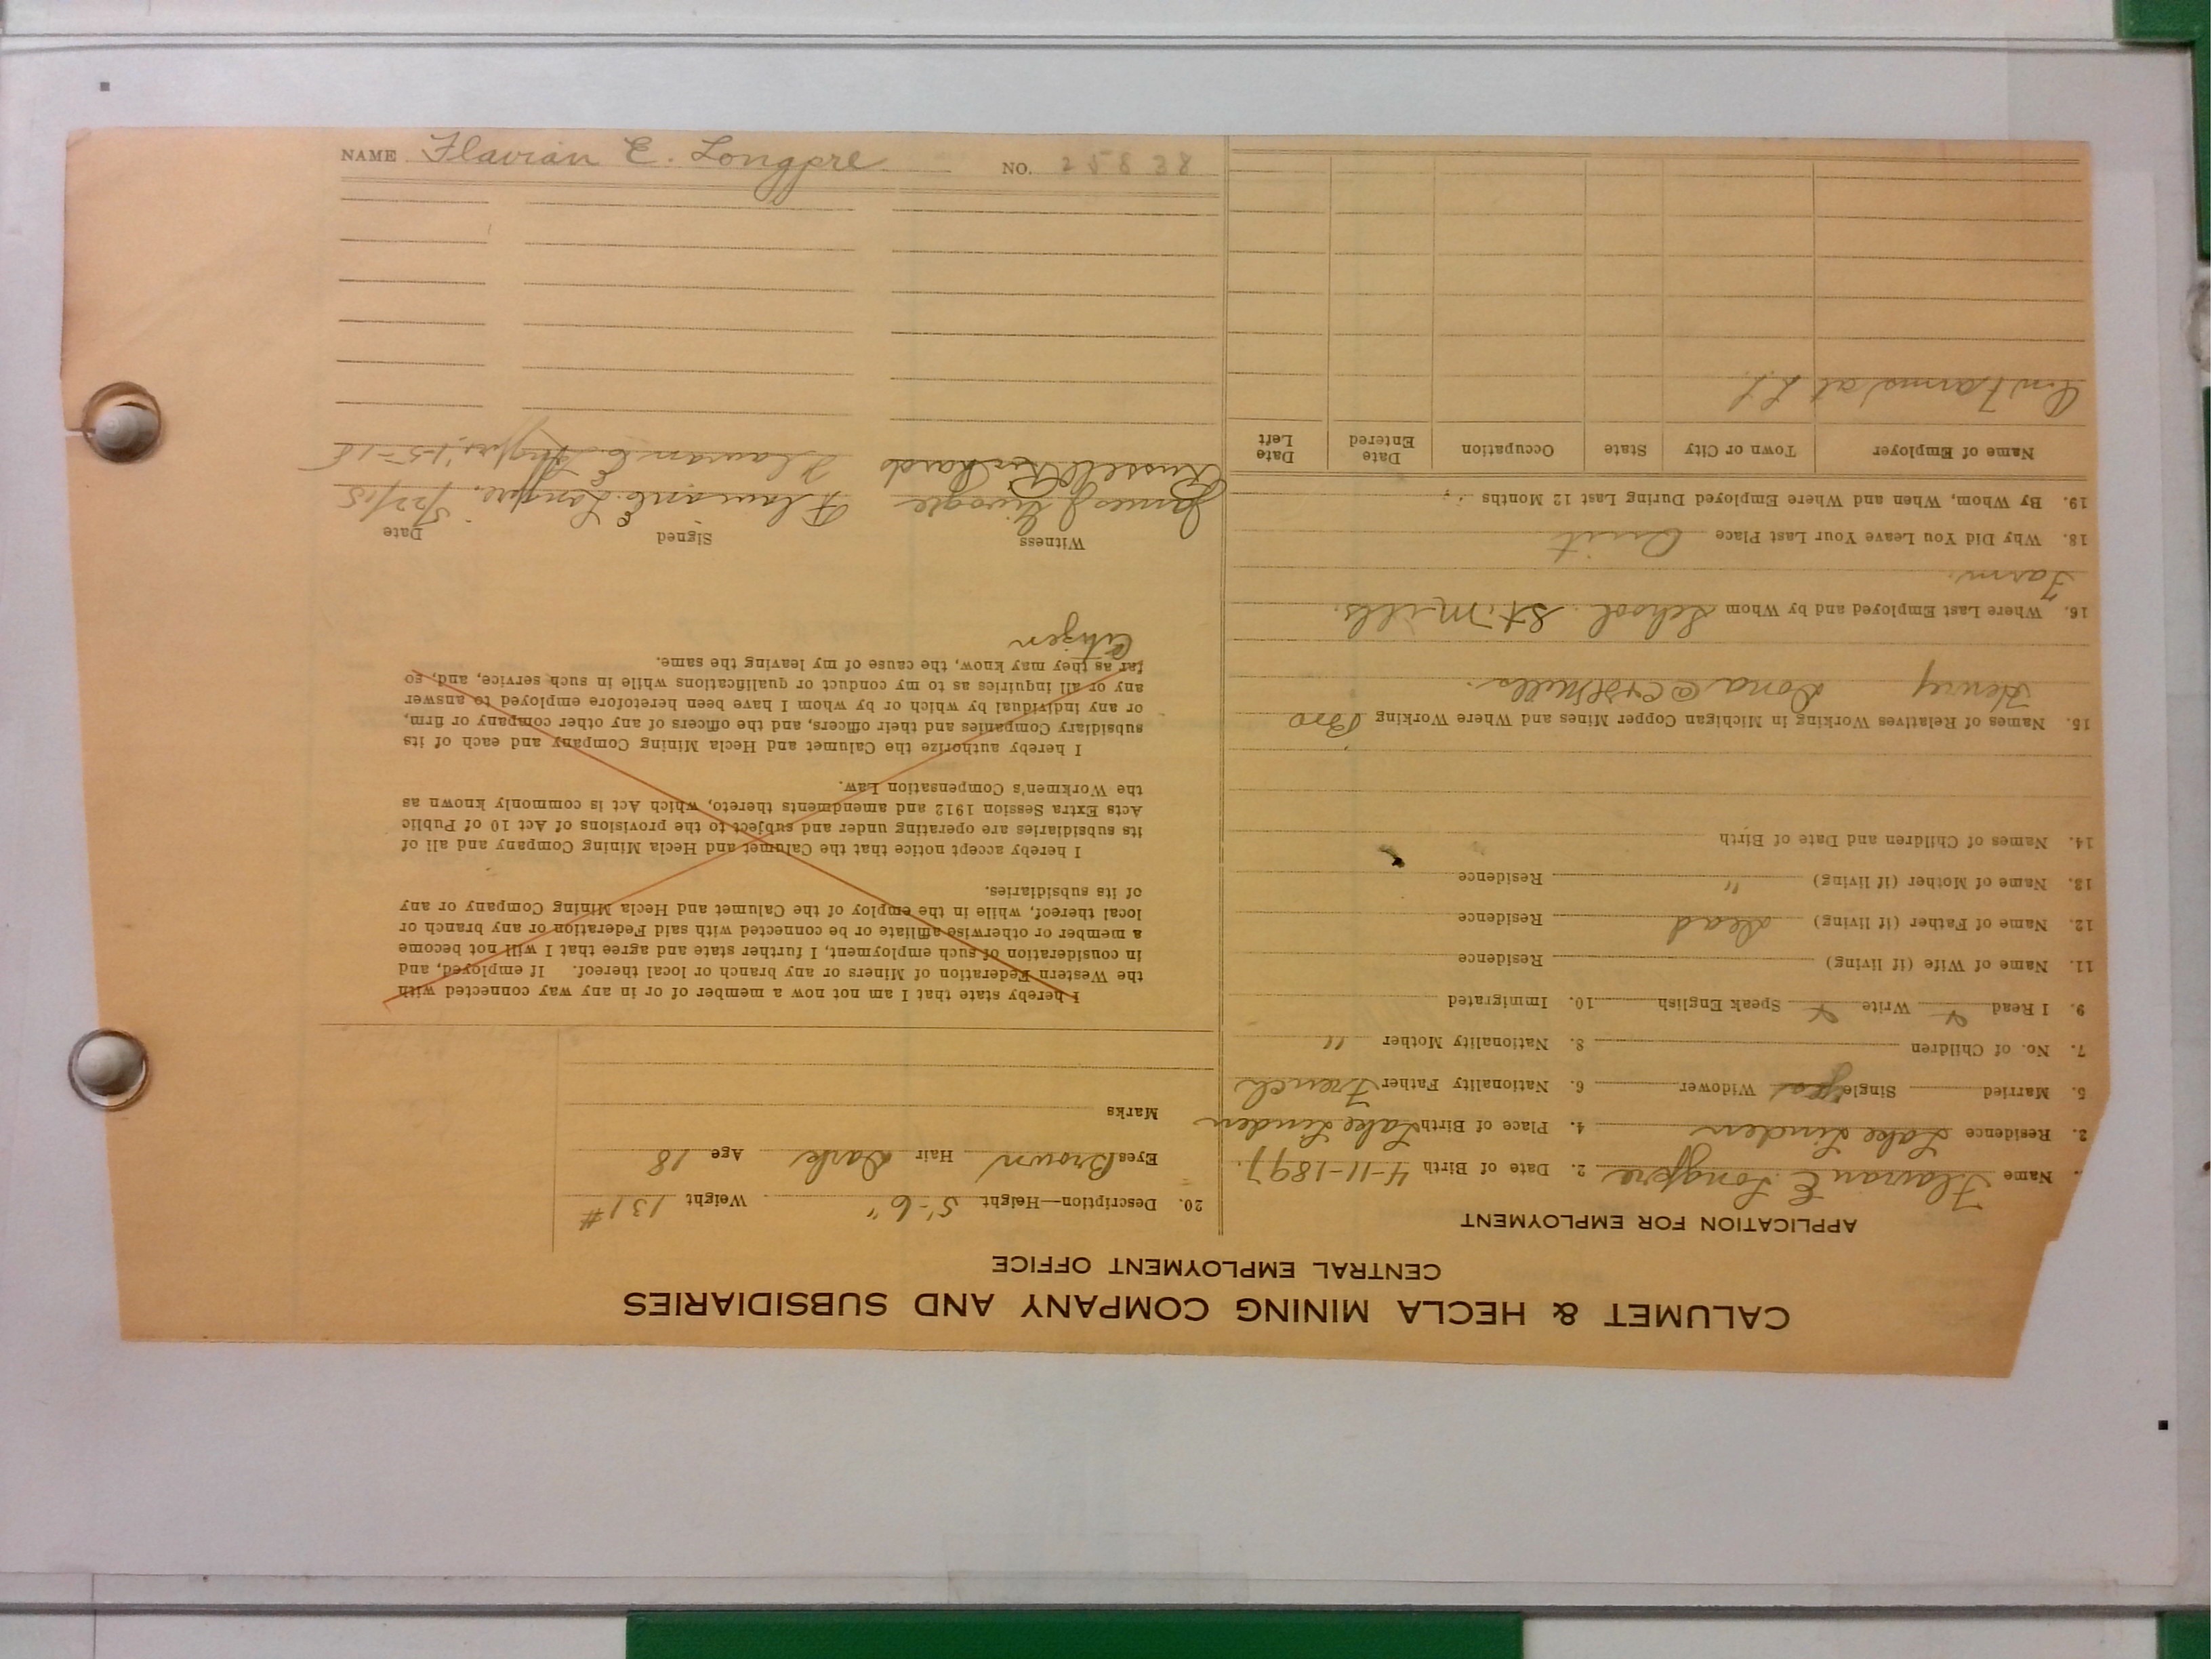 NAME Flavian E. Longpre NO. 25838
CALUMET & HECLA MINING COMPANY AND SUBSIDIARIES
CENTRAL EMPLOYMENT OFFICE
APPLICATION FOR EMPLOYMENT
Name Flavian E. Longpre 2. Date of Birth 4-11-1897.
3. Residence Lake Linden 4. Place of Birth Lake Linden
5. Married Single yes Widower 6. Nationality Father French
7. No. of Children 8. Nationality Mother "
9. I Read Write Speak English 10. Immigrated
11. Name of Wife (if living) Residence
12. Name of Father (if living) dead Residence
13. Name of Mother (if living) " Residence
14. Names of Children and Date of Birth
15. Names of Relatives Working in Michigan Copper Mines and Where Working Bro
Henry Dona @ C&H Mills.
16. Where Last Employed and by Whom School. St. Mills.
Farm
18. Why Did You Leave Your Last Place Quit
19. By Whom, When and Where Employed During Last 12 Months
Name of Employer Town or City State Occupation Date Entered Date Left
On Farms at L.L.
20. Description—Height 5'-6" Weight 131#
Eyes Brown Hair Dark Age 18
Marks
I hereby state that I am not now a member of or in any way connected with
the Western Federation of Miners or any branch or local thereof. If employed, and
in consideration of such employment, I further state and agree that I will not become
a member or otherwise affiliate or be connected with said Federation or any branch or
local thereof, while in the employ of the Calumet and Hecla Mining Company or any
of its subsidiaries.
I hereby accept notice that the Calumet and Hecla Mining Company and all of
its subsidiaries are operating under and subject to the provisions of Act 10 of Public
Acts Extra Session 1912 and amendments thereto, which Act is commonly known as
the Workmen's Compensation Law.
I hereby authorize the Calumet and Hecla Mining Company and each of its
subsidiary Companies and their officers, and the officers of any other company or firm,
or any individual by which or by whom I have been heretofore employed to answer
any or all inquiries as to my conduct or qualifications while in such service, and, so
far as they may know, the cause of my leaving the same.
Citizen
Witness Signed Date
James J. Flavian E. Longpre. 5/22/15
Russell Richards Flavian E. Longpre 1-5-18